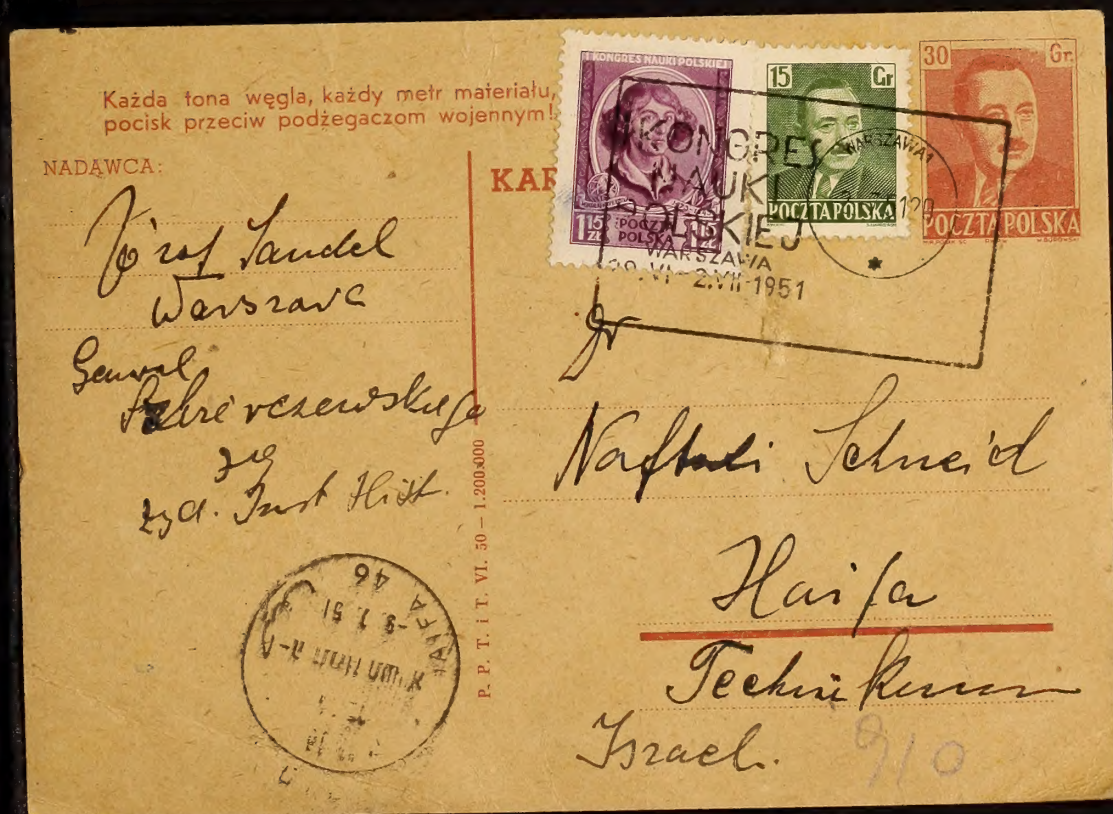 Każda tona węgla, każdy metr materiału,
pocisk przeciw podżegaczom wojennym!
NADAWCA:
Józef Sandel
Warszawa
General
79
żyd. Inst Hist.
KAR
I KONGRES NAUKI POLSKIEJ
1 15 ZŁ POCZTA POLSKA 1 15 ZŁ
15 Gr
POCZTA POLSKA
30 Gr.
POCZTA POLSKA
I KONGRES
NAUKI
POLSKIEJ
WARSZAWA
VI - 2.VII-1951
WARSZAWA 1
Naftali Schneid
Haifa
Technikum
Israel.
910
P. P. T. i T. VI. 50 – 1.200.000
HAIFA
46